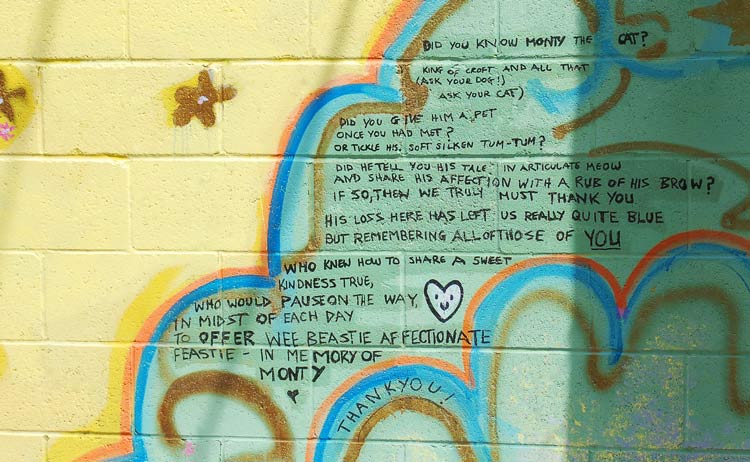 DID YOU KNOW MONTY THE CAT?
KING OF CROFT AND ALL THAT
(ASK YOUR DOG!)
ASK YOUR CAT)
DID YOU GIVE HIM A PET
ONCE YOU HAD MET?
OR TICKLE HIS SOFT SILKEN TUM-TUM?
DID HE TELL YOU HIS TALE IN ARTICULATE MEOW
AND SHARE HIS AFFECTION WITH A RUB OF HIS BROW?
IF SO, THEN WE TRULY MUST THANK YOU
HIS LOSS HERE HAS LEFT US REALLY QUITE BLUE
BUT REMEMBERING ALL OF THOSE OF YOU
WHO KNEW HOW TO SHARE A SWEET
KINDNESS TRUE,
WHO WOULD PAUSE ON THE WAY,
IN MIDST OF EACH DAY
TO OFFER WEE BEASTIE AFFECTIONATE
FEASTIE - IN MEMORY OF
MONTY
THANKYOU!